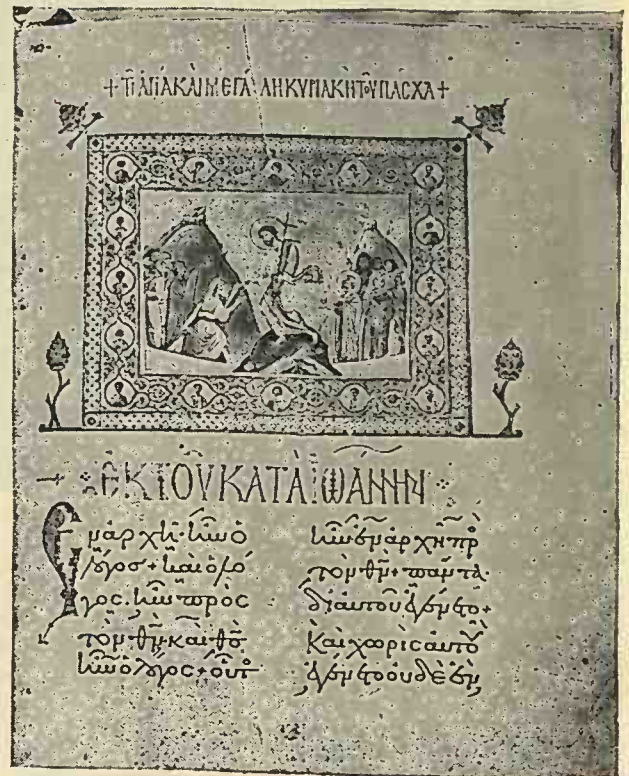 + ΤΗ ΑΓΙΑ ΚΑΙ ΜΕΓΑΛΗ ΚΥΡΙΑΚΗ ΤΟΥ ΠΑΣΧΑ +
ΕΚ ΤΟΥ ΚΑΤΑ ΙΩΑΝΝΗΝ
Ἐν ἀρχῇ ἦν ὁ
λόγος + καὶ ὁ λό
γος ἦν πρὸς
τὸν θν̅ καὶ θς̅
ἦν ὁ λόγος + οὗτο
ἦν ἐν ἀρχῇ πρὸ
τὸν θν̅ + πάντα
δι αὐτοῦ ἐγένετο +
καὶ χωρὶς αὐτοῦ
ἐγένετο οὐδὲ ἕν